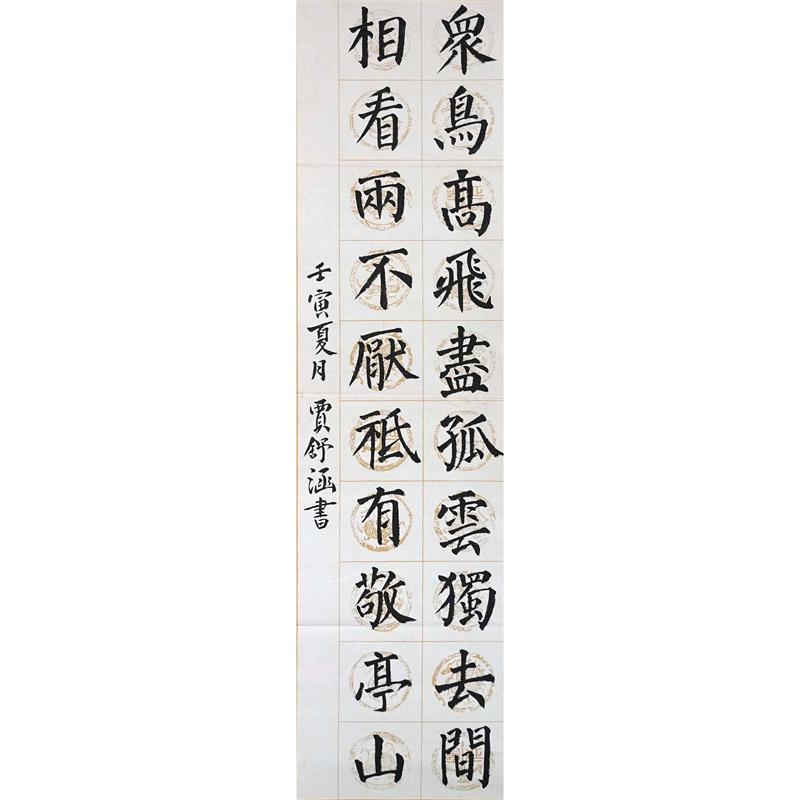 衆鳥髙飛盡孤雲獨去間
相看兩不厭祗有敬亭山
壬寅夏月 賈舒涵書